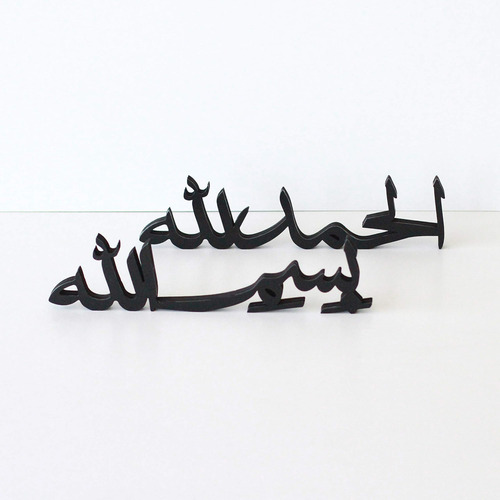 الحمد لله
بسم الله